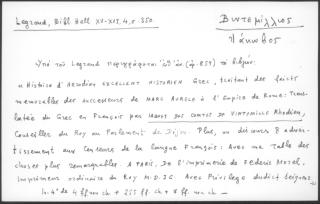 Legrand, Bibl. Hell. XV-XVI, 4, σ. 350.
Βιντεμίλλιος
Ἰάκωβος
Ὑπὸ τοῦ Legrand περιγράφεται ὑπ' ἀρ. (ἀρ. 859) τὸ
« Histoire d'Herodian EXCELLENT HISTORIEN GREC, traitant des faicts
memorables des successeurs de MARC AURELE à l'Empire de Rome: Trans-
latée du Grec en François par JAQUES DES COMTES DE VINTEMILLE Rhodien,
Conseiller du Roy au Parlement de Dijon. Plus, un discours & adver-
tissement aux Censeurs de la langue Françoise: Avec une Table des
choses plus remarquables. A PARIS, De l'imprimerie de Federic Morel,
Imprimeur ordinaire du Roy M.D.
Avec Privilege dudict Seigneur.
In-4° de 4 ff non ch + 255 ff ch + 8 ff non ch